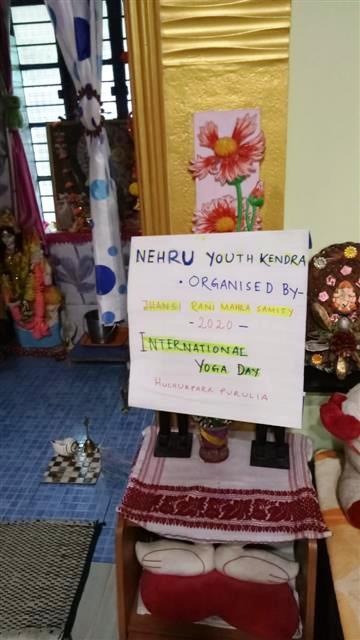 NEHRU YOUTH KENDRA
• ORGANISED BY-
JHANSI RANI MAHLA SAMITY
- 2020 -
INTERNATIONAL
YOGA DAY
HUCHUKPARA PURULIA